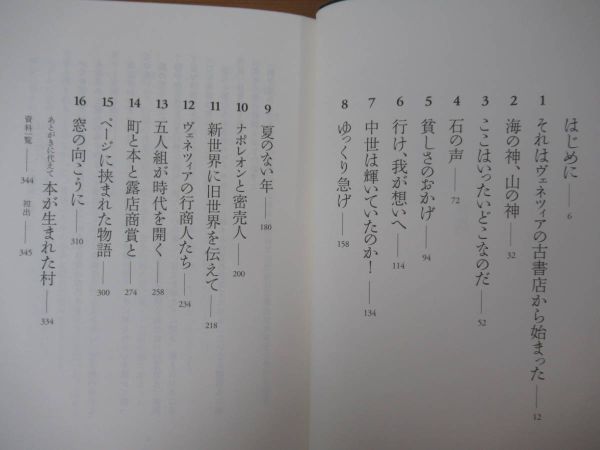 はじめに――6
1 それはヴェネツィアの古書店から始まった――12
2 海の神、山の神――32
3 ここはいったいどこなのだ――52
4 石の声――72
5 貧しさのおかげ――94
6 行け、我が想いへ――114
7 中世は輝いていたのか!――134
8 ゆっくり急げ――158
9 夏のない年――180
10 ナポレオンと密売人――200
11 新世界に旧世界を伝えて――218
12 ヴェネツィアの行商人たち――234
13 五人組が時代を開く――258
14 町と本と露店商賞と――274
15 ページに挟まれた物語――300
16 窓の向こうに――310
あとがきに代えて 本が生まれた村――334
資料一覧――344 初出――345